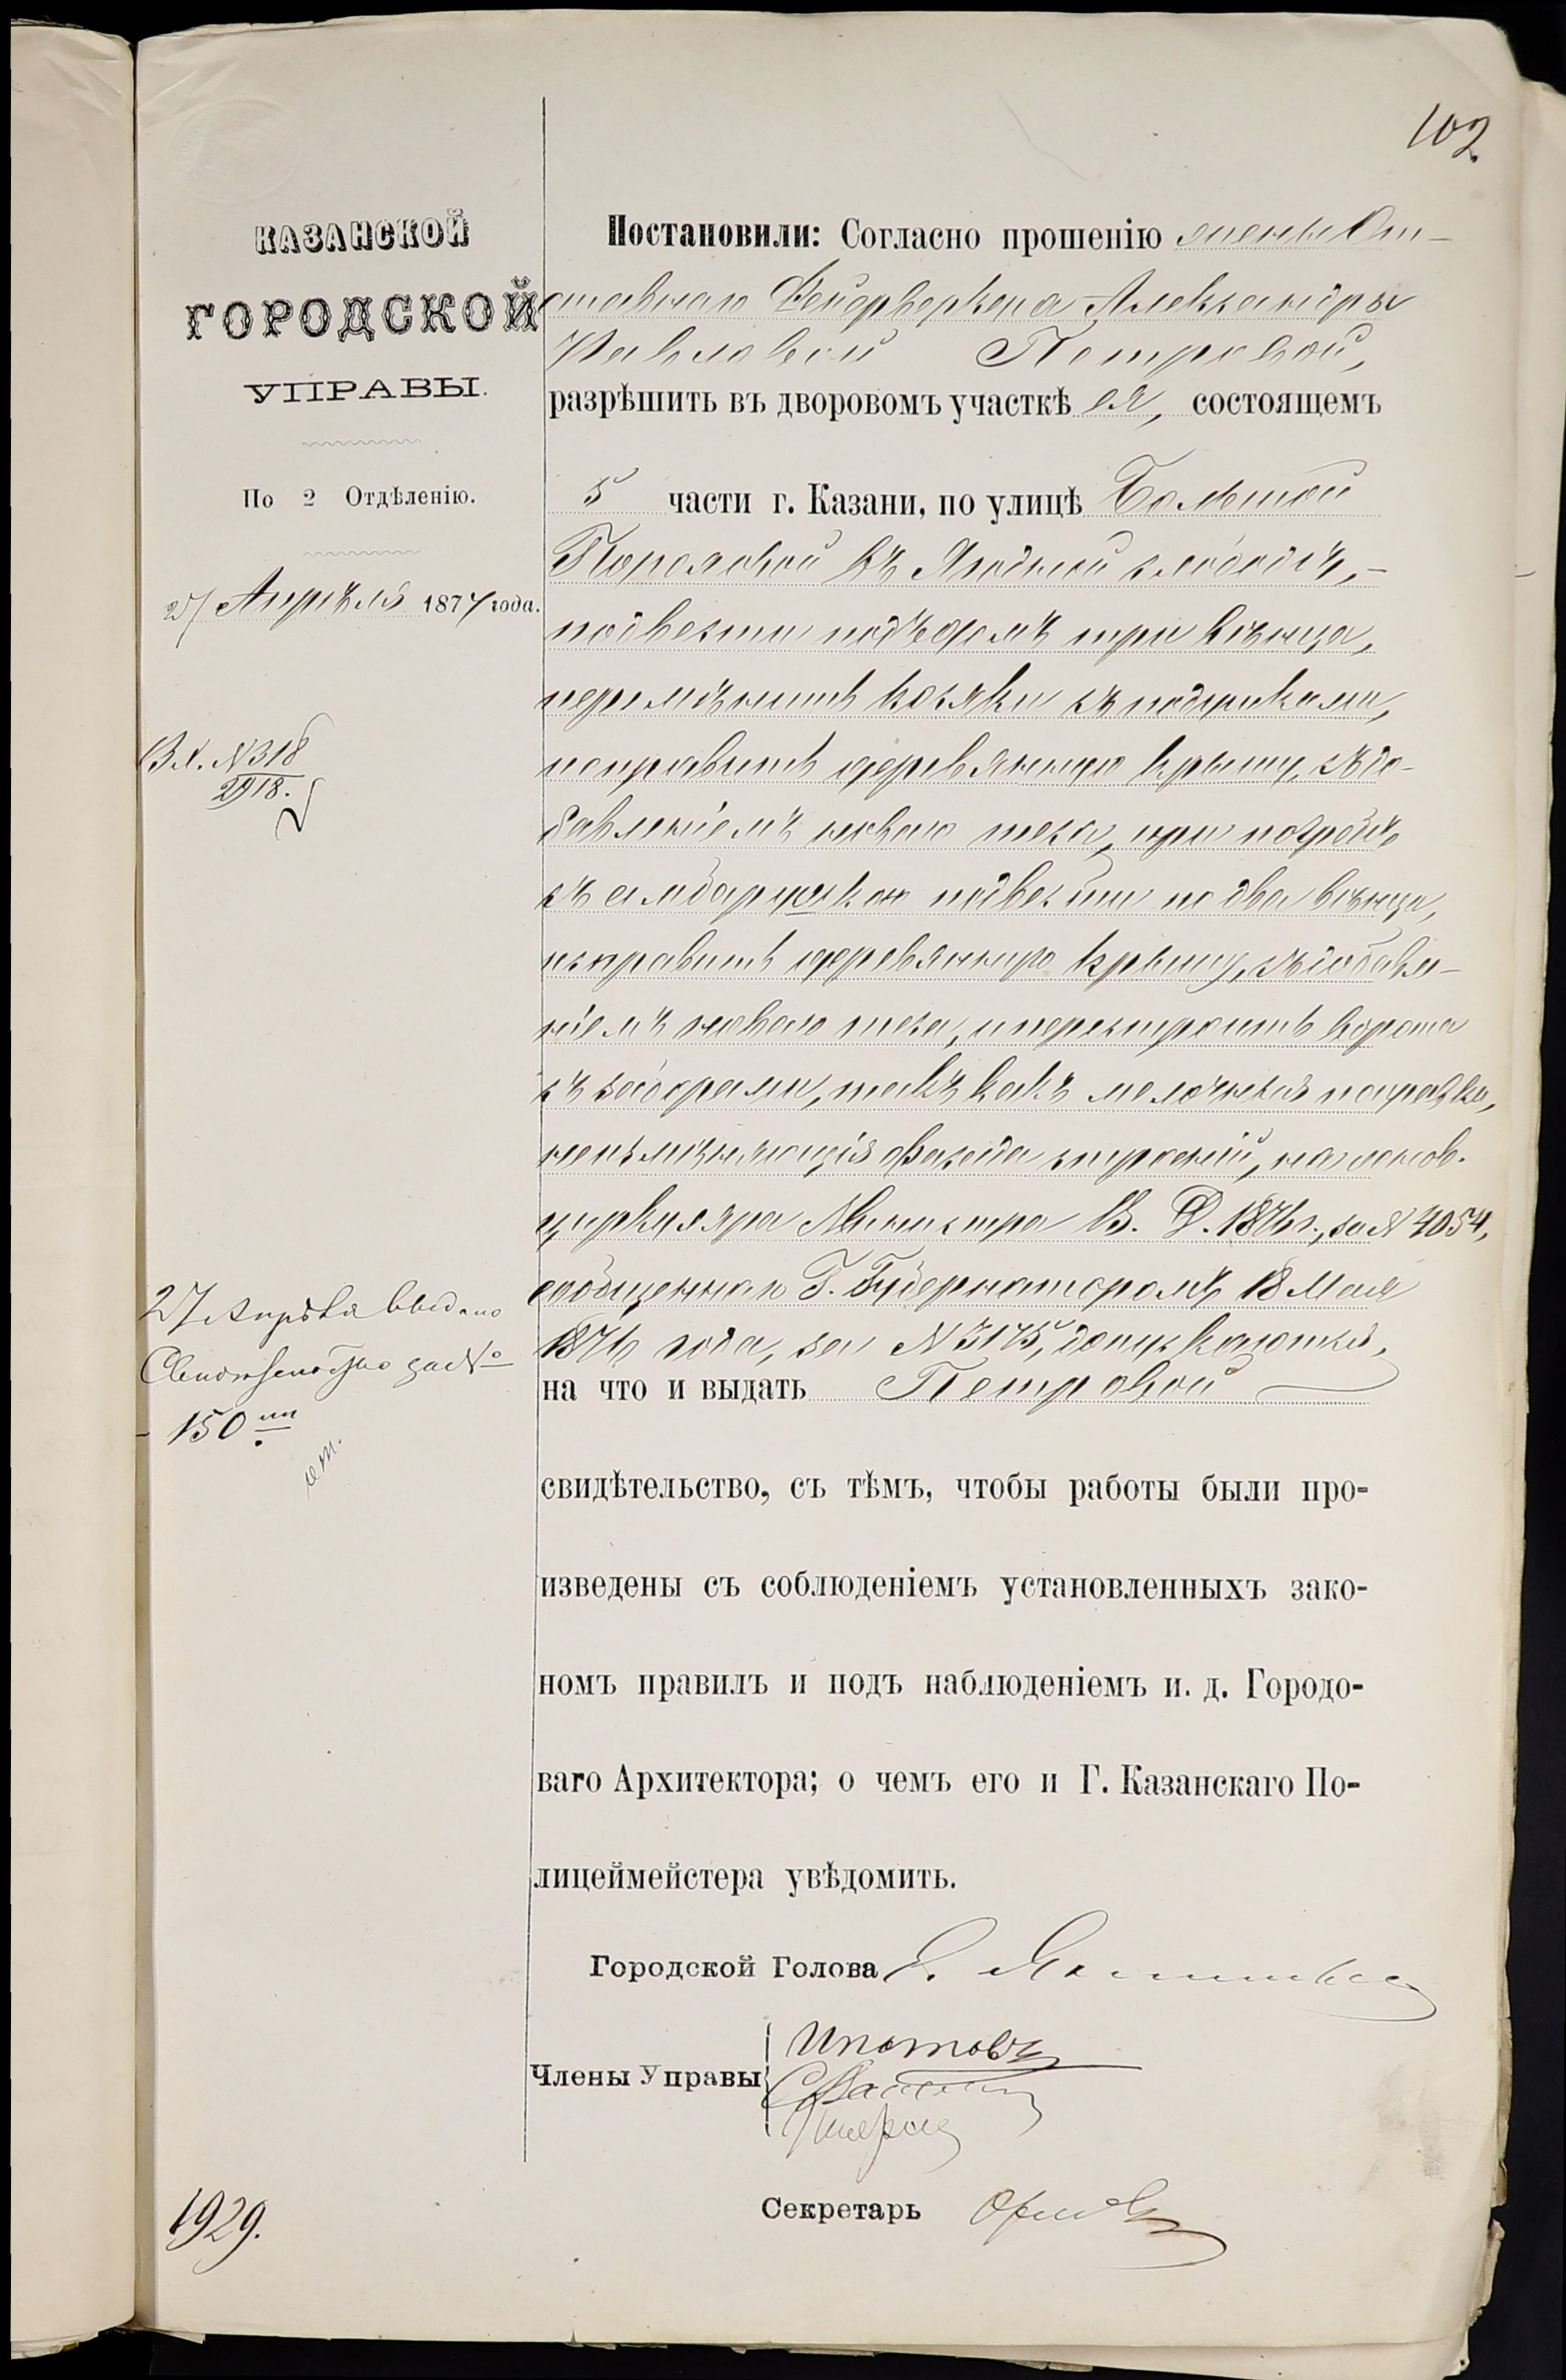 102
КАЗАНСКОЙ
ГОРОДСКОЙ
УПРАВЫ.
По 2 Отдѣленію.
27 Апрѣля 1877 года.
Вх. N 318
2918.
27 Апрѣля выдано
Свидѣтельство за №
150
1929.
Постановили: Согласно прошенію жены От-
ставнаго Фейерверкера Александры
Павловой Петровой,
разрѣшить въ дворовомъ участкѣ ея, состоящемъ
5 части г. Казани, по улицѣ Большой
Пороховой въ Ягодной слободѣ,-
подвести подъ домъ три вѣнца,
перемѣнить косяки съ подушками,
исправить деревянную крышу, съ до-
бавленіемъ новаго теса, при погребѣ
съ амбарушкою подвести по два вѣнца,
исправить деревянную крышу, съ добавле-
ніемъ новаго теса, и перестроить ворота
съ заборами, такъ какъ мелочныя поправки,
неизмѣняющія фасада строеній, на основ.
циркуляра Министра В. Д. 1876 г., за N 4054,
сообщеннаго Г. Губернаторомъ 18 Мая
1876 года, за N 3175, допускаются,
на что и выдать Петровой
свидѣтельство, съ тѣмъ, чтобы работы были про-
изведены съ соблюденіемъ установленныхъ зако-
номъ правилъ и подъ наблюденіемъ и. д. Городо-
ваго Архитектора; о чемъ его и Г. Казанскаго По-
лицеймейстера увѣдомить.
Городской Голова
Члены Управы Ипатовъ
Секретарь Орловъ